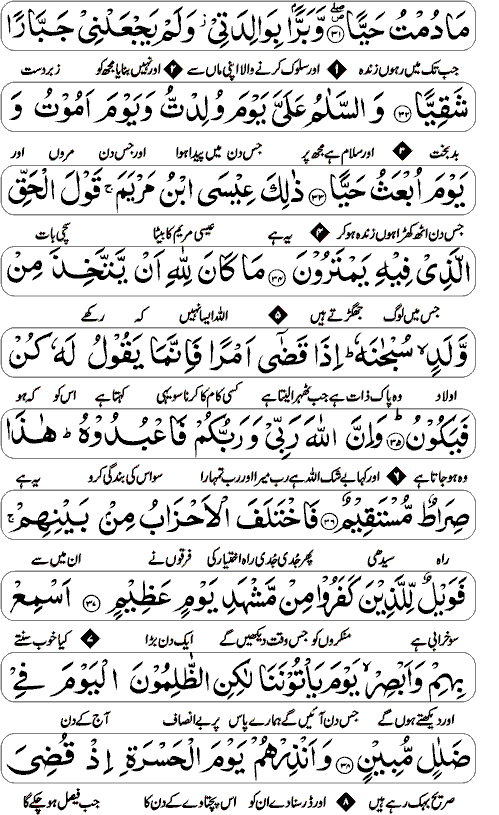 مَا دُمْتُ حَيًّا ﴿۳۱﴾ وَّبَرًّۢا بِوَالِدَتِیْ ۫ وَلَمْ یَجْعَلْنِیْ جَبَّارًا
جب تک میں رہوں زندہ ۱ اور سلوک کرنے والا اپنی ماں سے ۲ اور نہیں بنایا مجھ کو زبردست
شَقِیًّا ﴿۳۲﴾ وَالسَّلٰمُ عَلَیَّ یَوْمَ وُلِدْتُّ وَیَوْمَ اَمُوْتُ وَ
بدبخت ۳ اور سلام ہے مجھ پر جس دن میں پیدا ہوا اور جس دن مروں اور
یَوْمَ اُبْعَثُ حَیًّا ﴿۳۳﴾ ذٰلِكَ عِیْسَی ابْنُ مَرْیَمَ ۚ قَوْلَ الْحَقِّ
جس دن اٹھ کھڑا ہوں زندہ ہو کر ۴ یہ ہے عیسیٰ مریم کا بیٹا سچی بات
الَّذِیْ فِیْهِ یَمْتَرُوْنَ ﴿۳۴﴾ مَا كَانَ لِلّٰهِ اَنْ یَّتَّخِذَ مِنْ
جس میں لوگ جھگڑتے ہیں ۵ اللہ ایسا نہیں کہ رکھے
وَّلَدٍ ۙ سُبْحٰنَهٗ ؕ اِذَا قَضٰۤی اَمْرًا فَاِنَّمَا یَقُوْلُ لَهٗ كُنْ
اولاد وہ پاک ذات ہے جب ٹھہرا لیتا ہے کسی کام کا کرنا سو یہی کہتا ہے اس کو کہ ہو
فَیَكُوْنُ ﴿۳۵﴾ؕ وَاِنَّ اللّٰهَ رَبِّیْ وَرَبُّكُمْ فَاعْبُدُوْهُ ؕ هٰذَا
وہ ہو جاتا ہے ۶ اور کہا بے شک اللہ ہے رب میرا اور رب تمہارا سو اس کی بندگی کرو یہ ہے
صِرَاطٌ مُّسْتَقِیْمٌ ﴿۳۶﴾ فَاخْتَلَفَ الْاَحْزَابُ مِنْۢ بَیْنِهِمْ ۚ
راہ سیدھی پھر جُدی جُدی راہ اختیار کی فرقوں نے ان میں سے
فَوَیْلٌ لِّلَّذِیْنَ كَفَرُوْا مِنْ مَّشْهَدِ یَوْمٍ عَظِیْمٍ ﴿۳۷﴾ اَسْمِعْ
سو خرابی ہے منکروں کو جس وقت دیکھیں گے ایک دن بڑا ۷ کیا خوب سنتے
بِهِمْ وَاَبْصِرْ ۙ یَوْمَ یَاْتُوْنَنَا لٰكِنِ الظّٰلِمُوْنَ الْیَوْمَ فِیْ
اور دیکھتے ہوں گے جس دن آئیں گے ہمارے پاس پر بے انصاف آج کے دن
ضَلٰلٍ مُّبِیْنٍ ﴿۳۸﴾ وَاَنْذِرْهُمْ یَوْمَ الْحَسْرَةِ اِذْ قُضِیَ
صریح بہک رہے ہیں ۸ اور ڈر سنا دے ان کو اس پچتاوے کے دن کا جب فیصل ہو چکے گا